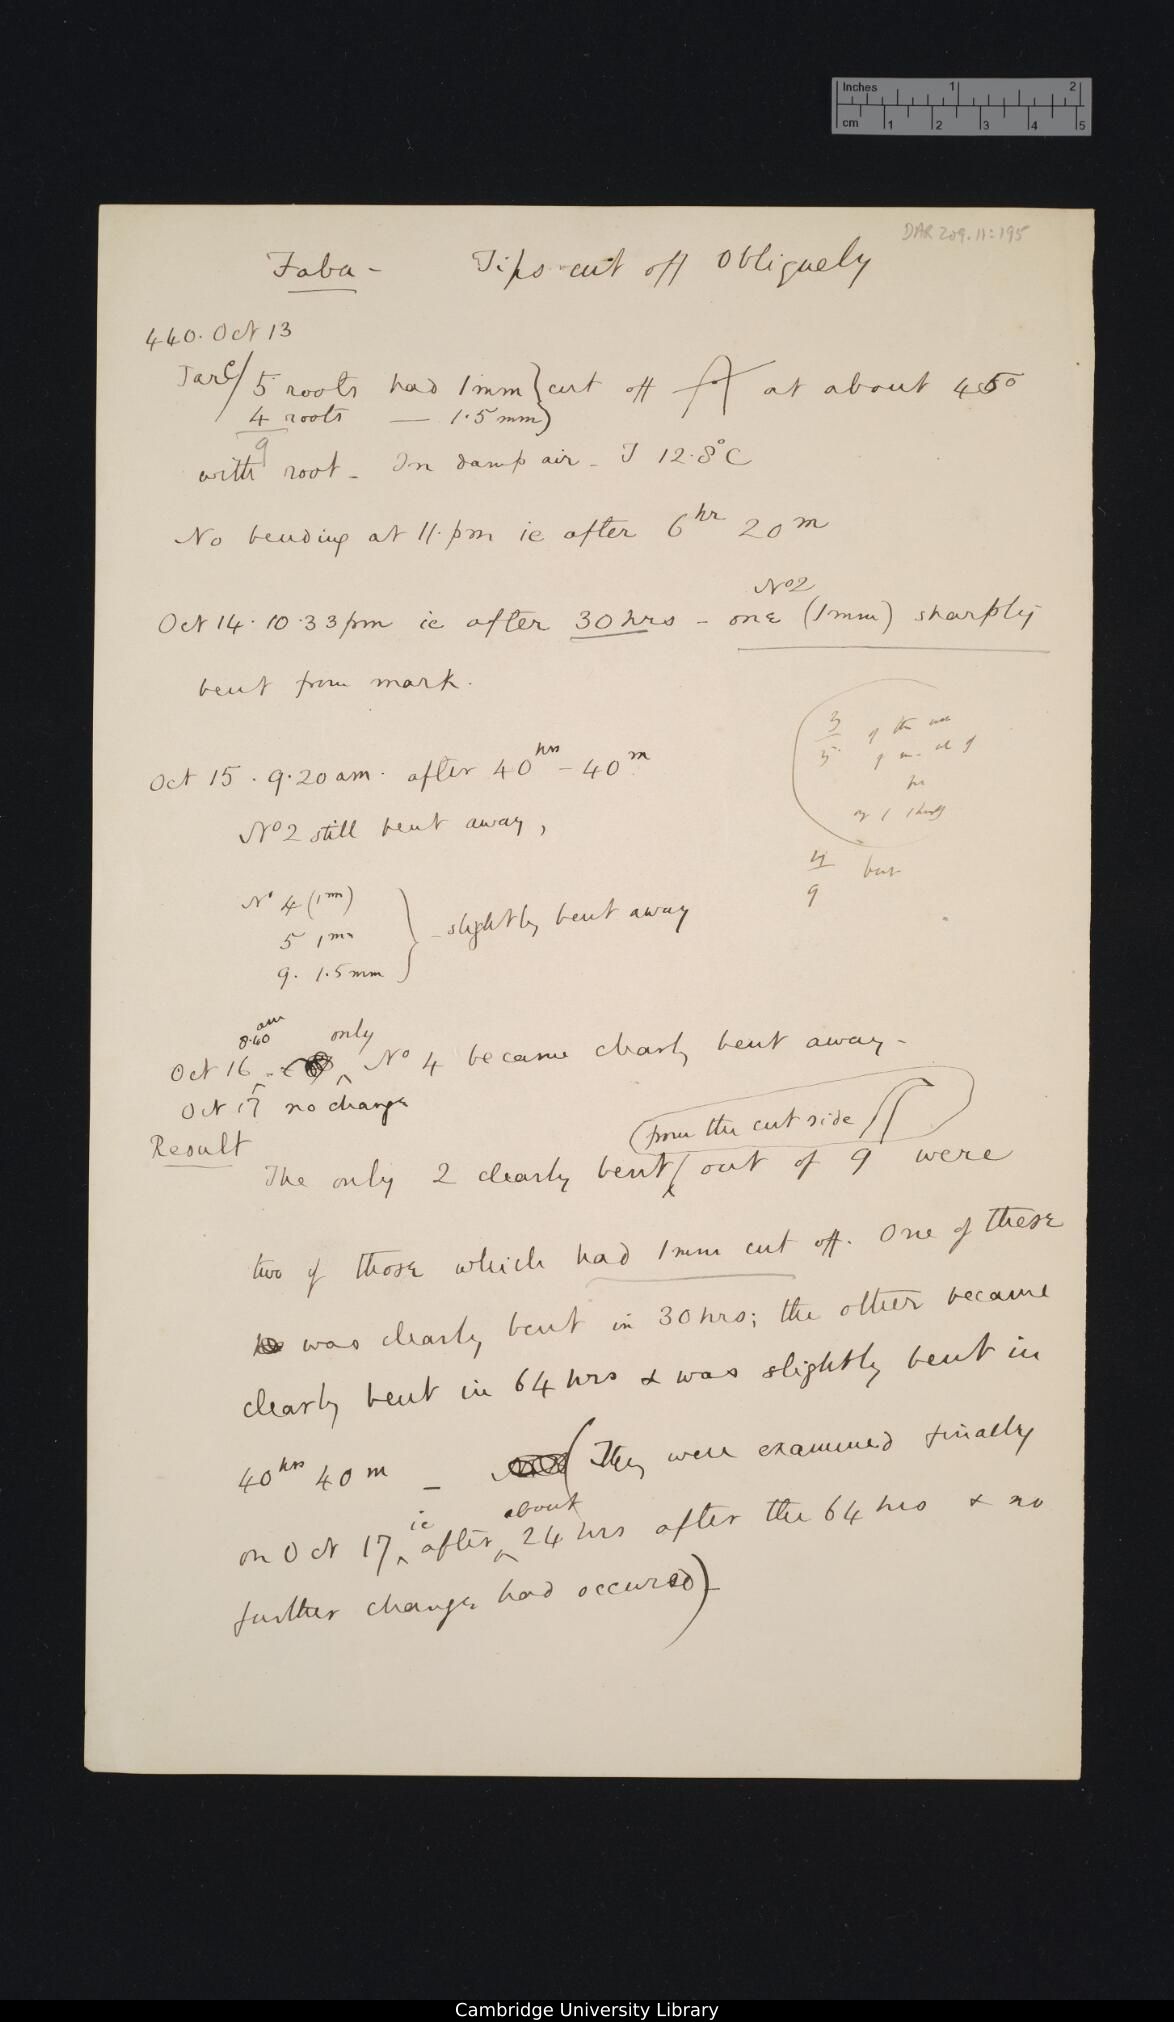 Inches 1 2
cm 1 2 3 4 5
DAR 209.11:195
Faba - Tips cut off Obliquely
440. Oct 13
Jar C / 5 roots had 1mm } cut off at about 45°
4 roots — 1.5mm }
9
with root - In damp air - T 12.8°C
No bending at 11.pm ie after 6hr 20m
No 2
Oct 14. 10.33pm ie after 30 hrs - one (1mm) sharply
bent from mark.
3/5 of the
Oct 15. 9.20am. after 40hrs - 40m
No 2 still bent away,
4/9 bent
No 4 (1mm)
5 1mm } - slightly bent away
9. 1.5mm
8.40 am only
Oct 16 - No 4 became clearly bent away -
Oct 17 no change
(from the cut side
Result
The only 2 clearly bent out of 9 were
two of those which had 1mm cut off. One of these
was clearly bent in 30 hrs; the other became
clearly bent in 64 hrs & was slightly bent in
40hrs 40m - (They were examined finally
ie about
on Oct 17 after 24 hrs after the 64 hrs & no
further change had occured) -
Cambridge University Library